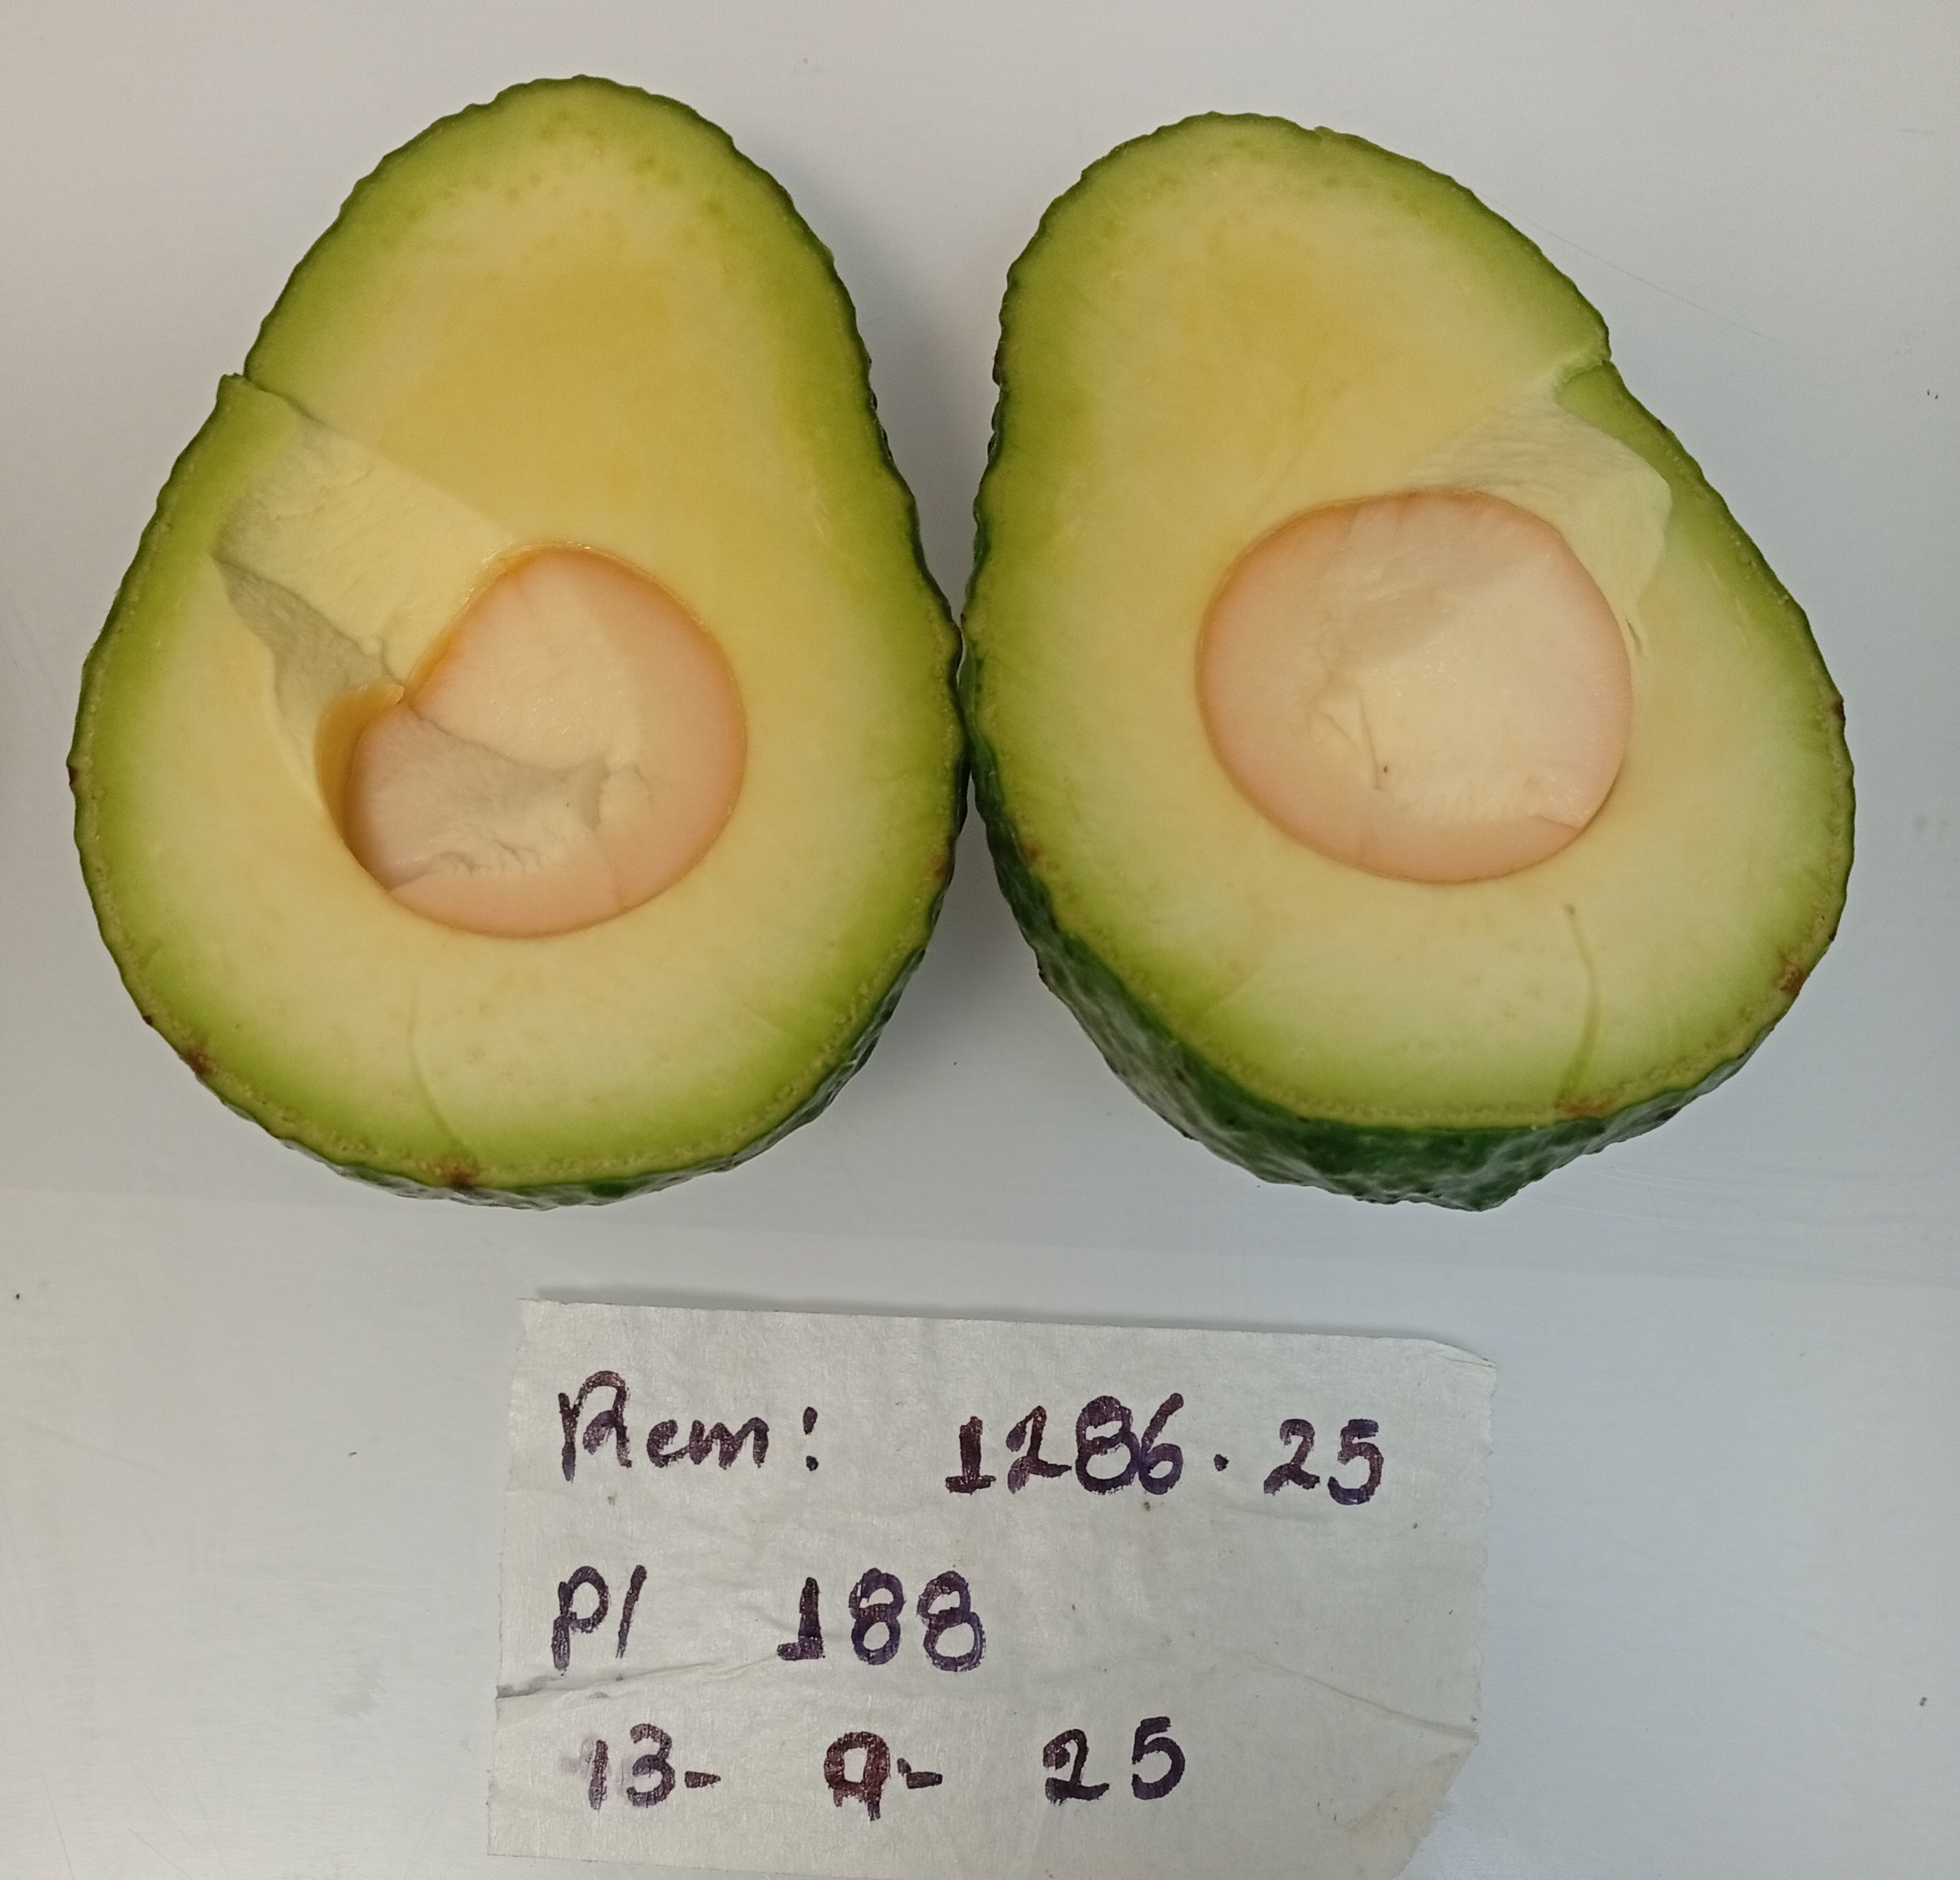 Rem: 1286.25
P/ 188
13-9-25